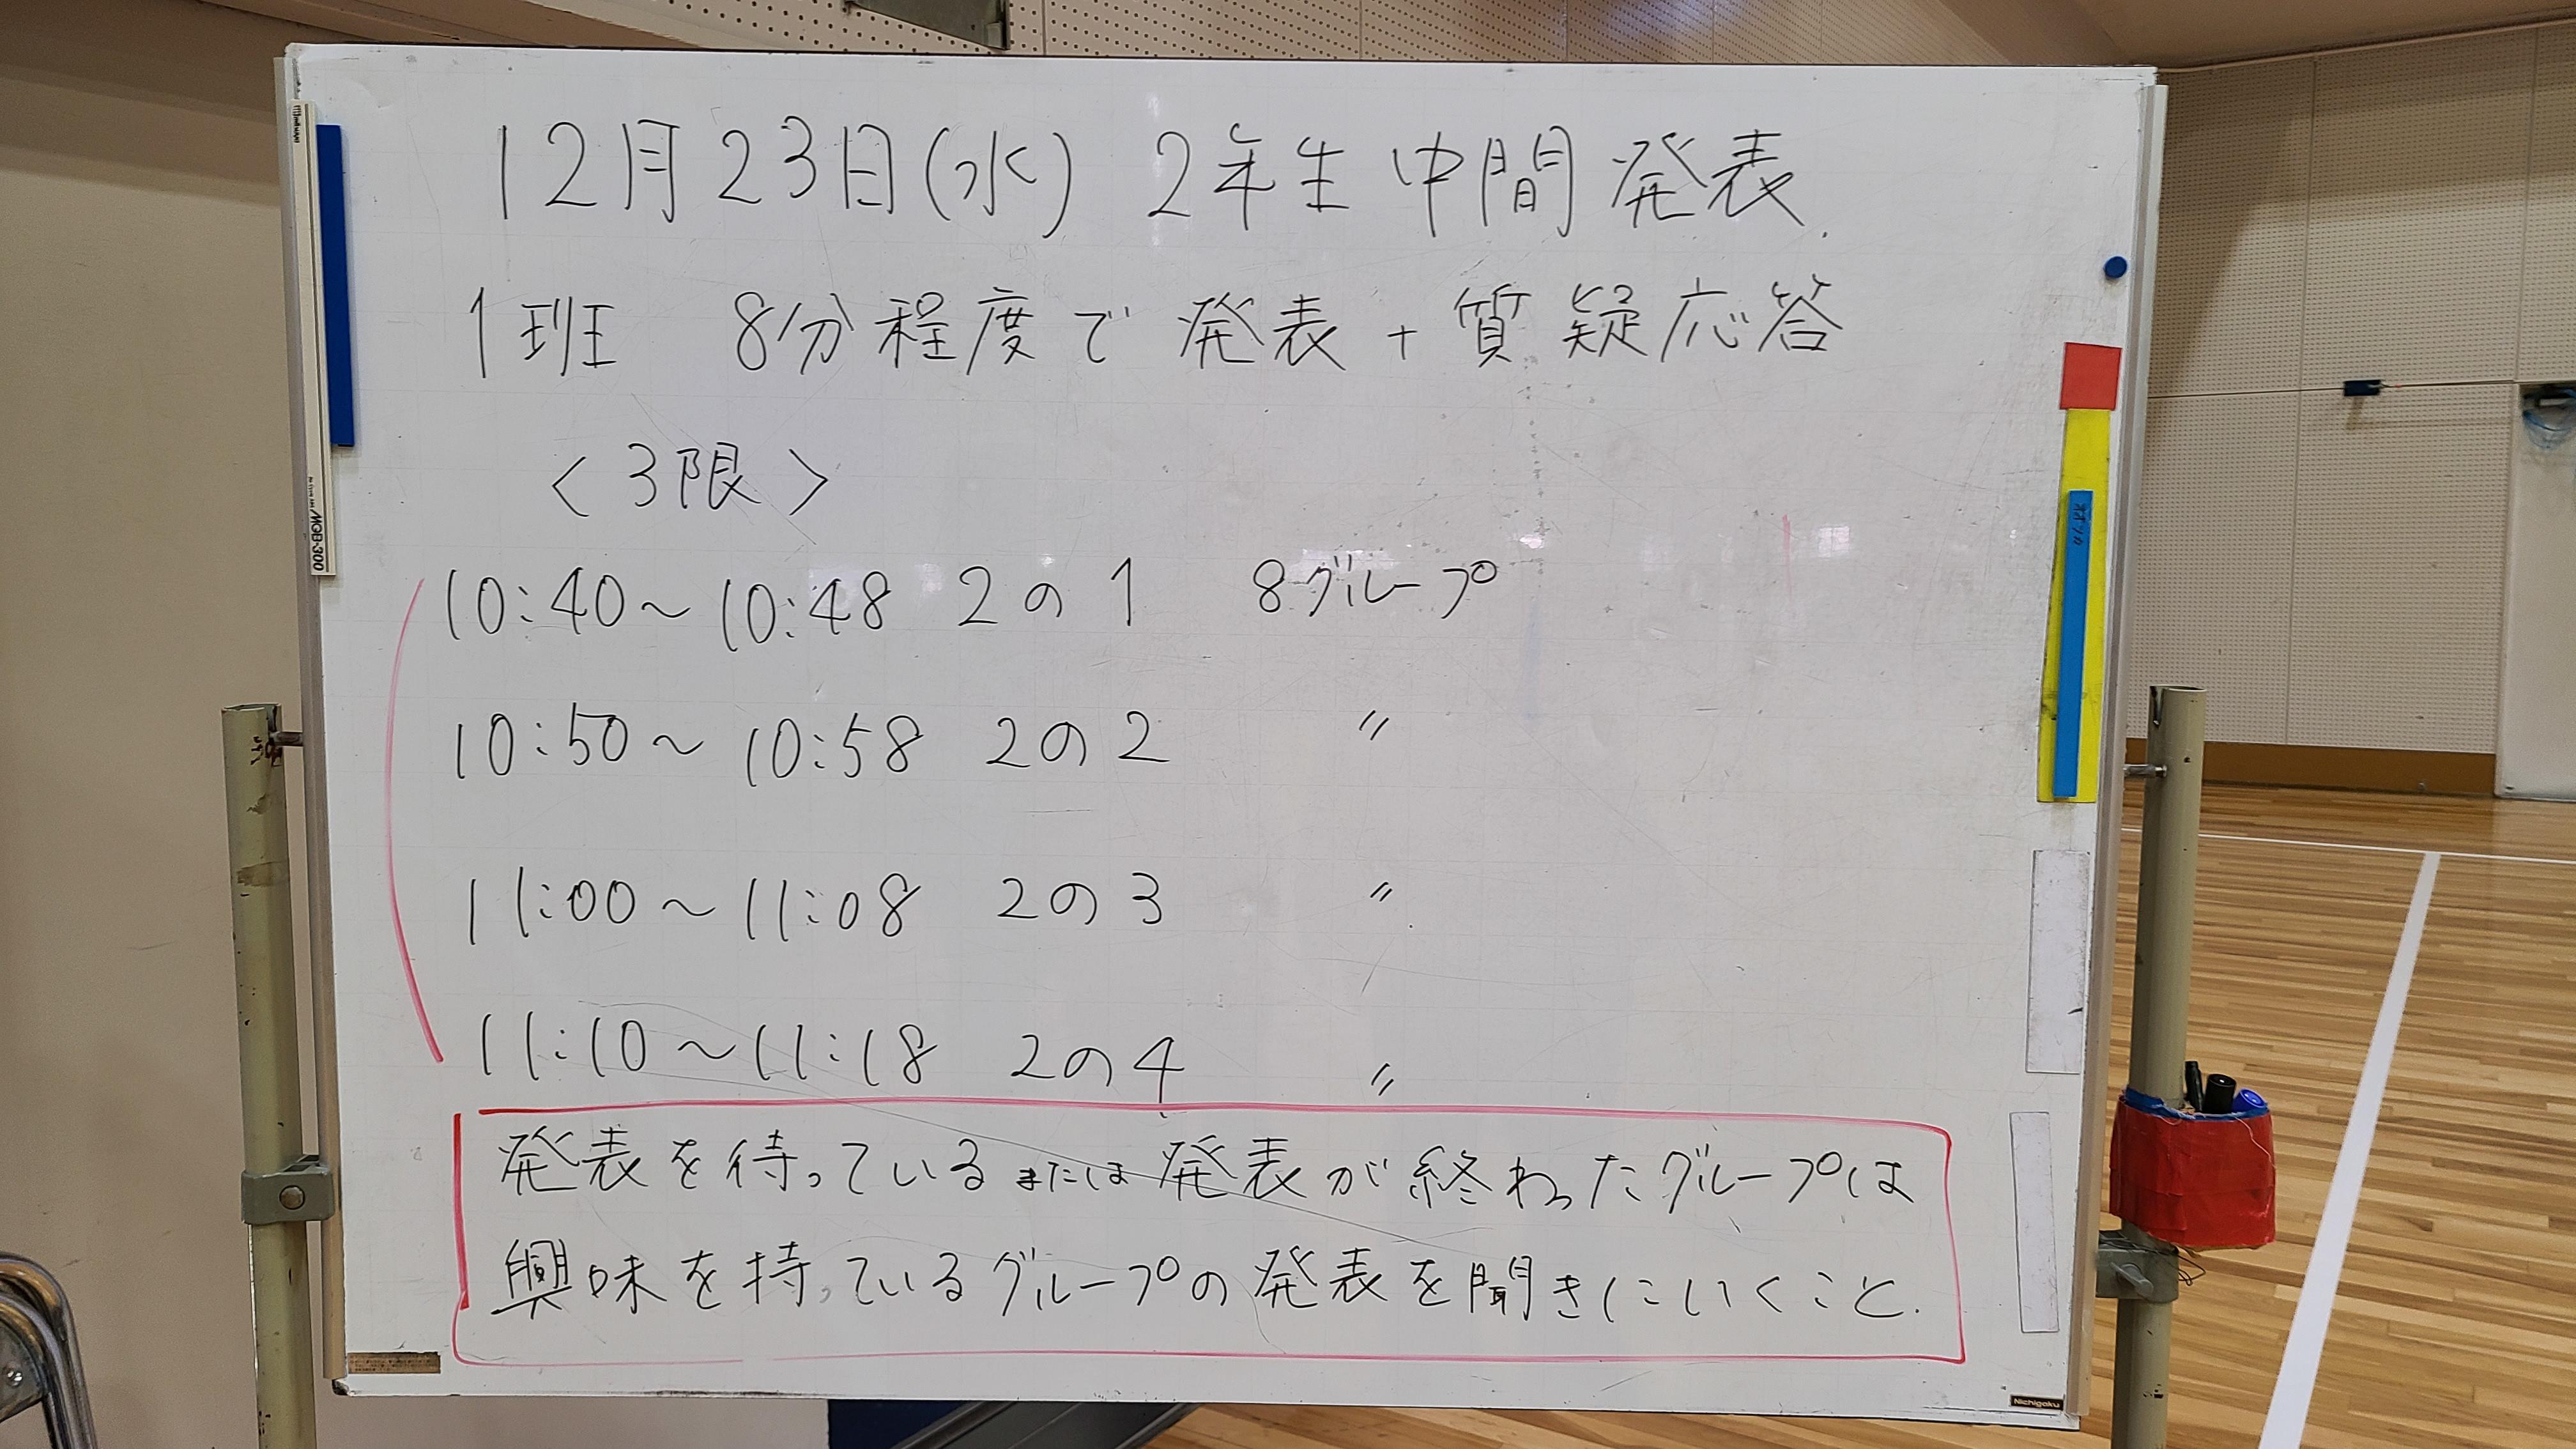 12月23日(水) 2年生中間発表.
1班 8分程度で発表+質疑応答
<3限>
10:40〜10:48 2の1 8グループ
10:50〜10:58 2の2 〃
11:00〜11:08 2の3 〃
11:10〜11:18 2の4 〃
発表を待っているまたは発表が終わったグループは
興味を持っているグループの発表を聞きにいくこと.
MGB-300
Nichigaku